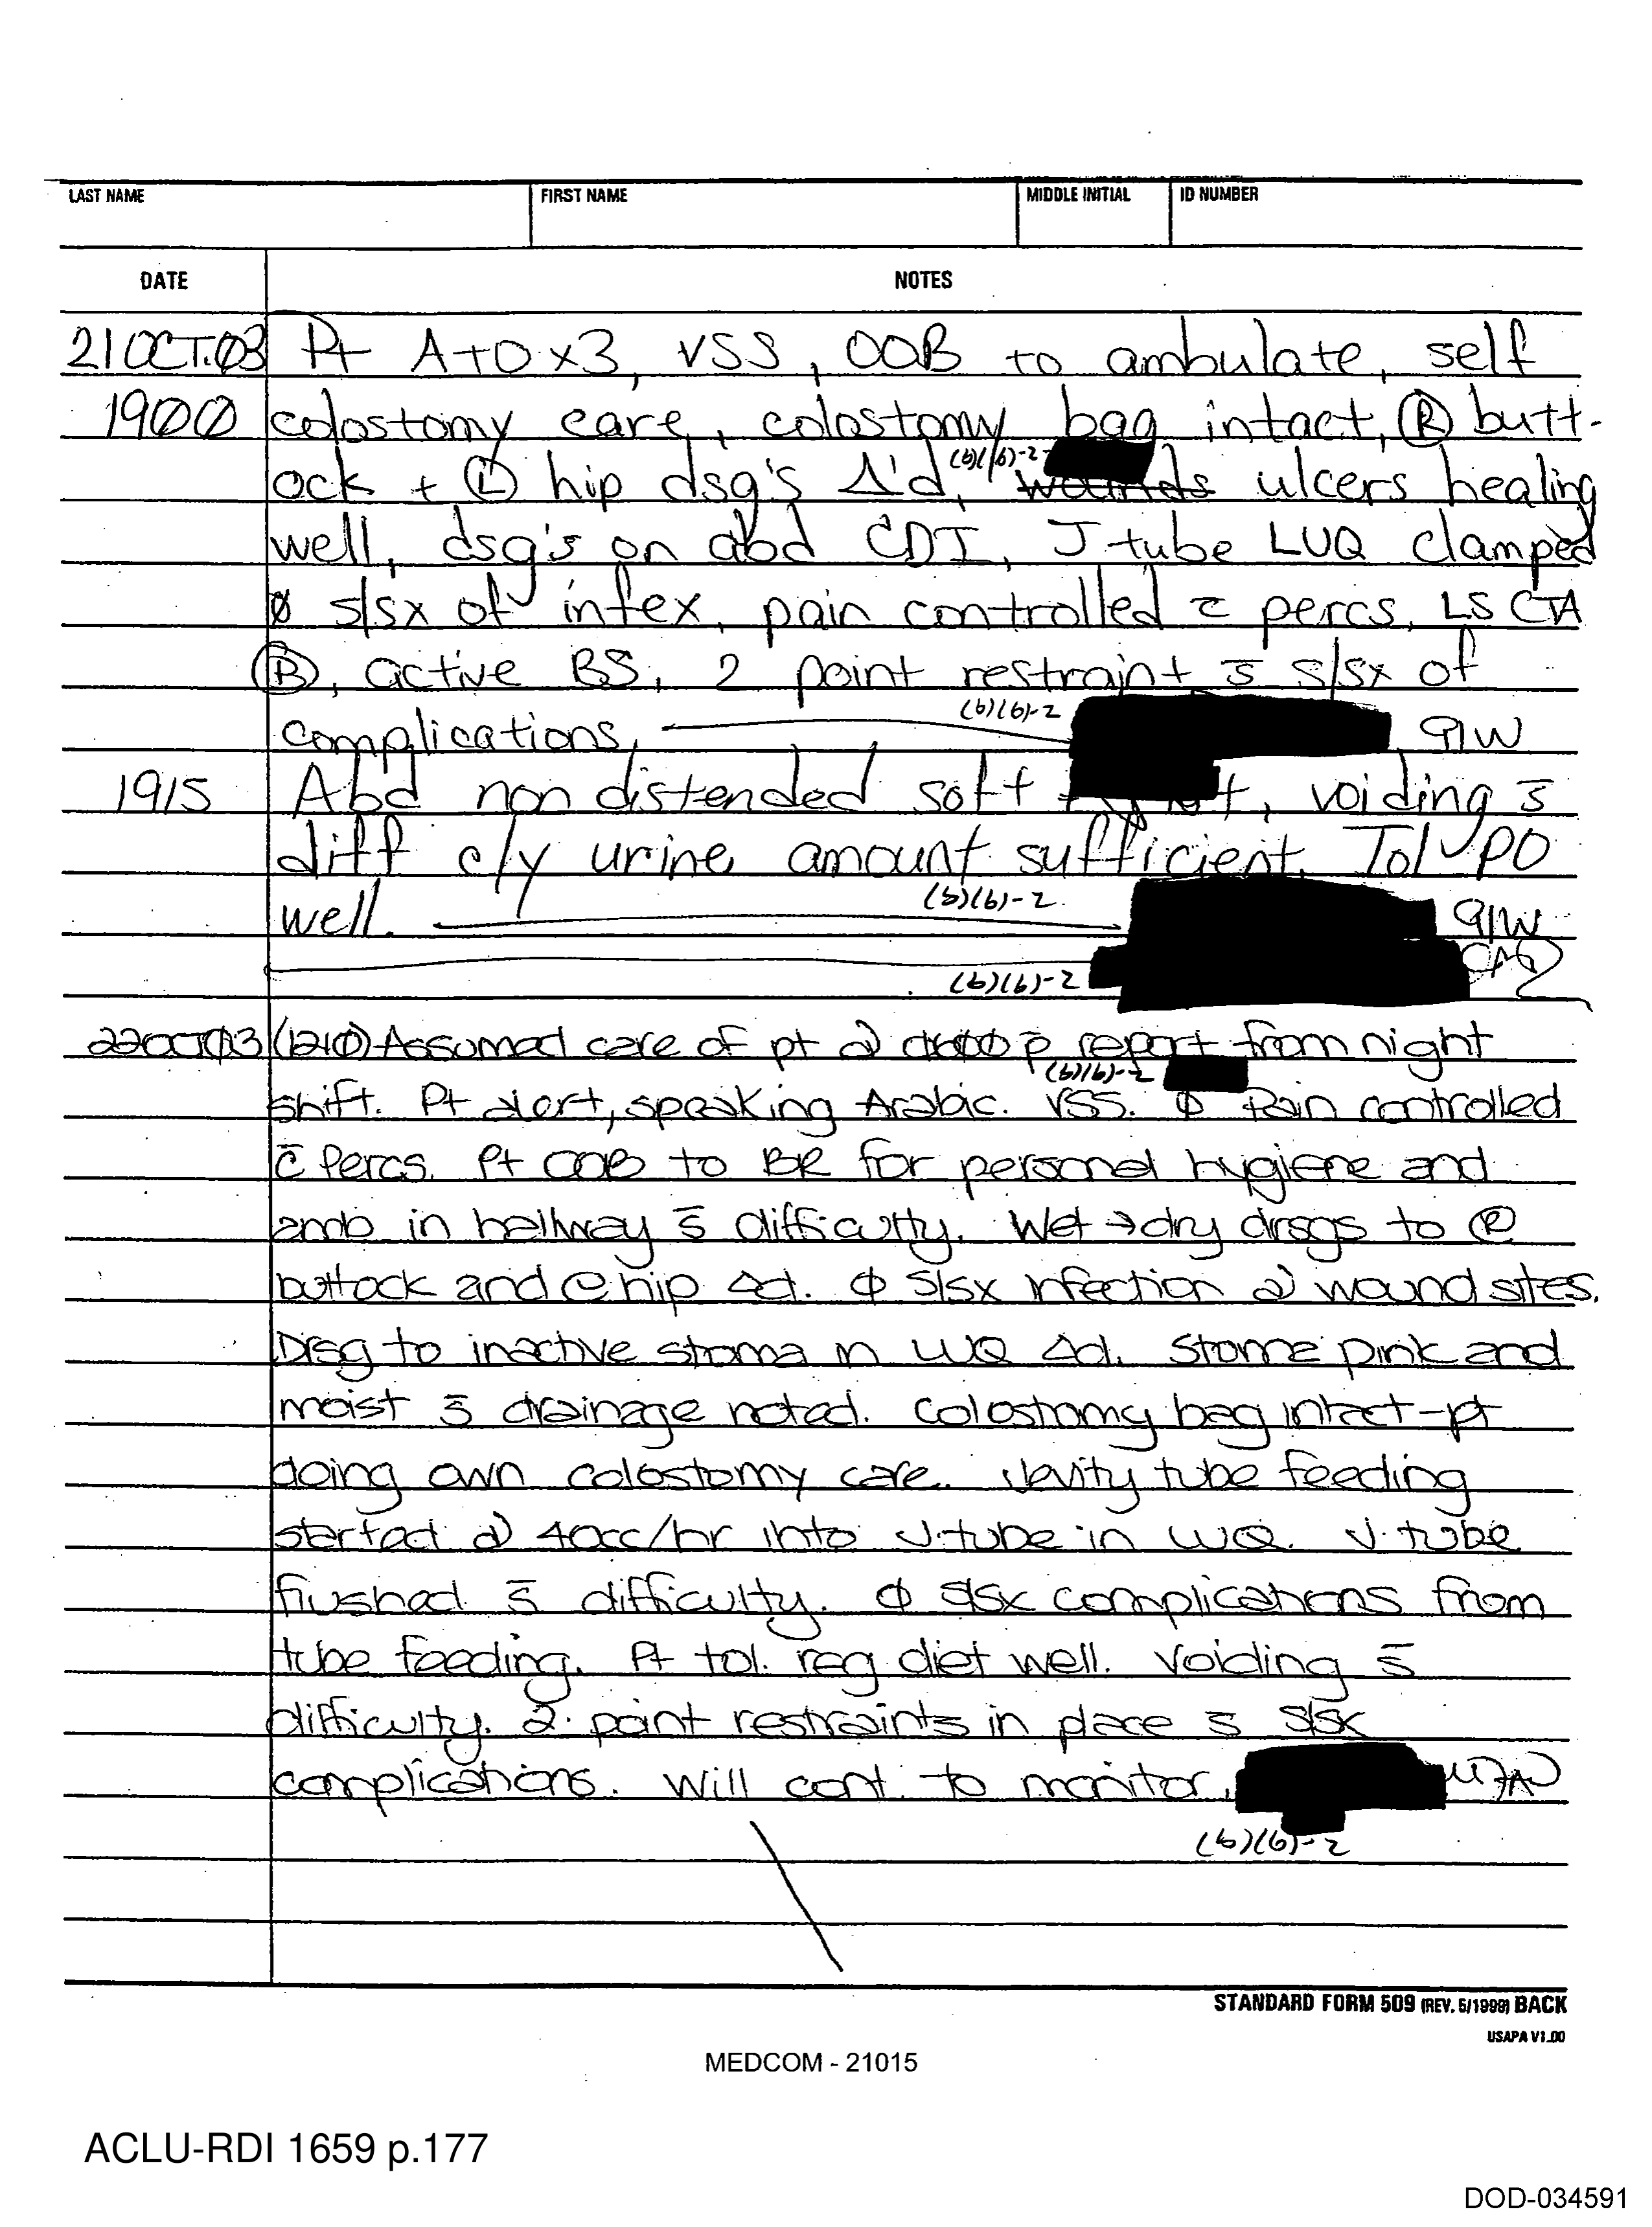 LAST NAME FIRST NAME MIDDLE INITIAL ID NUMBER
DATE NOTES
21 OCT.03 Pt A+O x3, VSS, OOB to ambulate, self
1900 colostomy care, colostomy bag intact, Ⓡ butt-
(b)(6)-2
ock + Ⓛ hip dsg's Δ'd, wounds ulcers healing
well, dsg's on abd CDI, J tube LUQ clamped
Ø s/sx of infex, pain controlled c̄ percs, LS CTA
Ⓑ, active BS, 2 point restraint s̄ s/sx of
(b)(6)-2
complications, 91W
1915 Abd non distended soft, voiding s̄
diff c/y urine, amount sufficient, Tol PO
(b)(6)-2
well. 91W
(b)(6)-2
22OCT03 (1210) Assumed care of pt @ p̄ report from night
(b)(6)-2
shift. Pt alert, speaking Arabic. VSS. Φ Pain controlled
c̄ Percs. Pt OOB to BR for personal hygiene and
amb in hallway s̄ difficulty. Wet → dry drsgs to Ⓡ
buttock and Ⓛ hip Δd. Φ s/sx infection @ wound sites.
Drsg to inactive stoma in LUQ Δd. Stoma pink and
moist s̄ drainage noted. Colostomy bag intact - pt
doing own colostomy care. Jevity tube feeding
started @ 40cc/hr into J-tube in LUQ. J-tube
flushed s̄ difficulty. Φ s/sx complications from
tube feeding. Pt tol. reg diet well. Voiding s̄
difficulty. 2 point restraints in place s̄ s/sx
complications. Will cont. to monitor.
(b)(6)-2
STANDARD FORM 509 (REV. 5/1999) BACK
USAPA V1.00
MEDCOM - 21015
ACLU-RDI 1659 p.177
DOD-034591